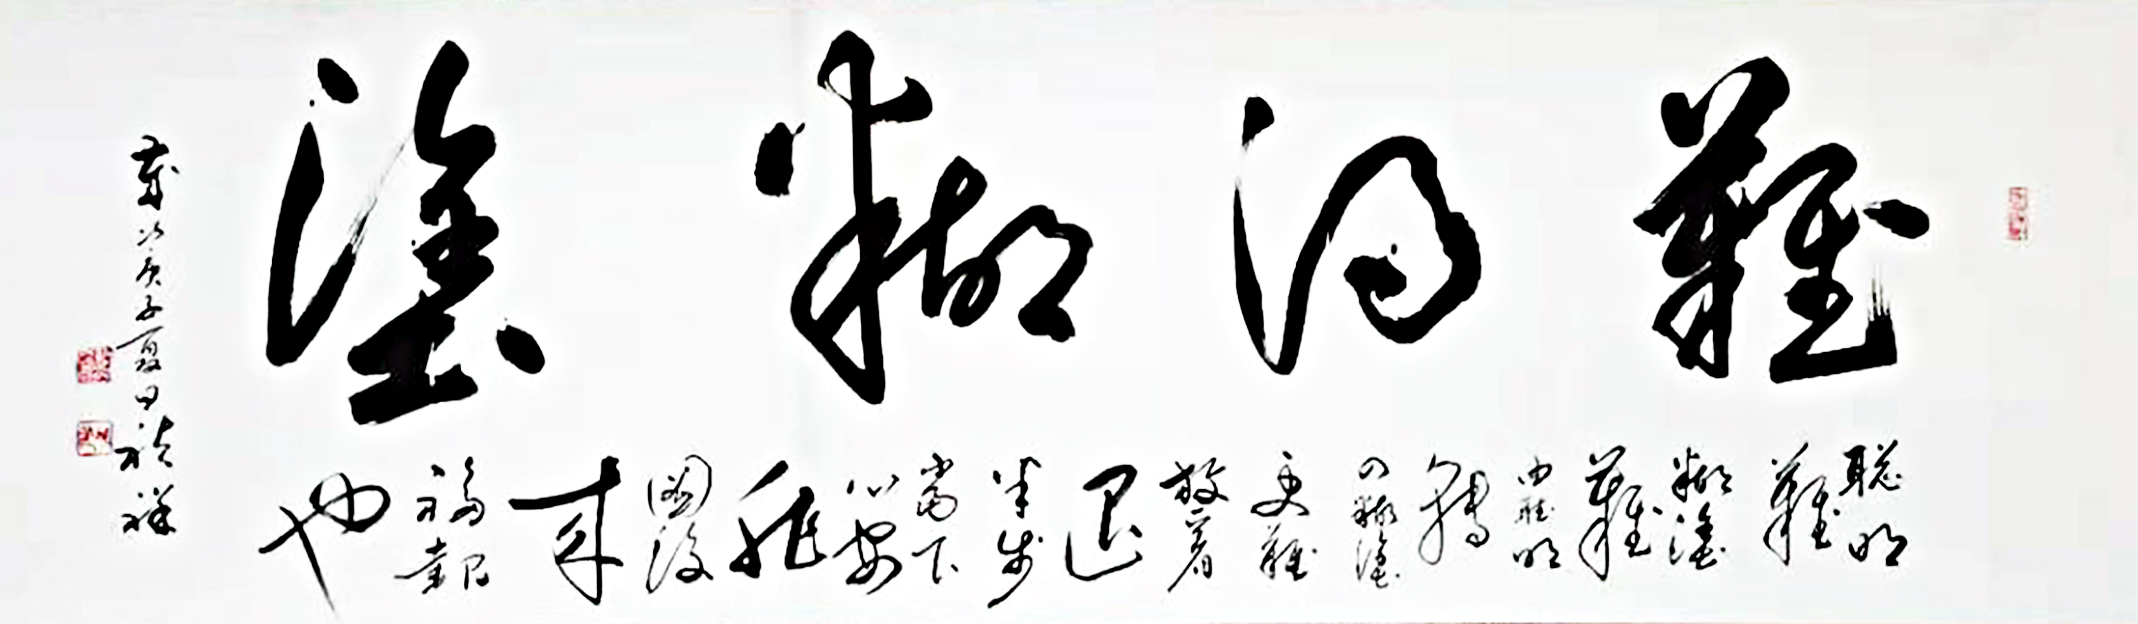 難得糊塗
聪明難糊塗難由聪明轉入糊塗更難放着退半步當下心安非圖後来福報也
歲次庚子夏日
祥